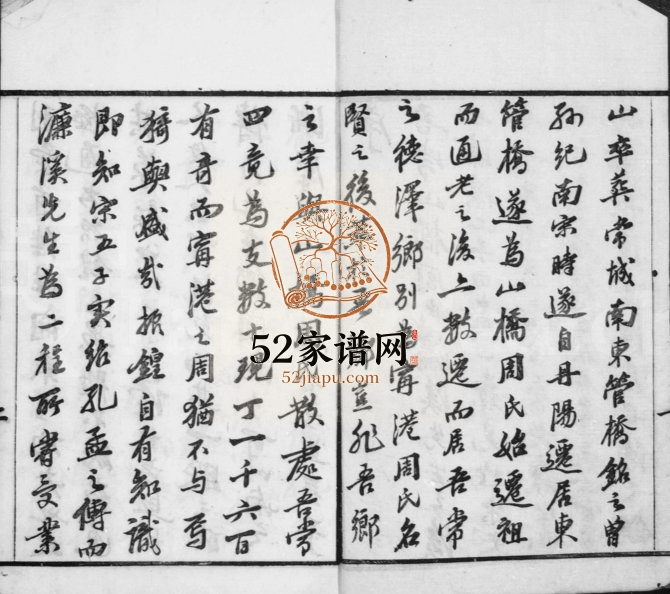 山卒葬常城南東管橋銘之曾
孫紀南宋時遂自丹陽遷居東
管橋遂為山橋周氏始遷祖
而通老之後亦數遷而居吾常
之德澤鄉別為甯港周氏名
賢之後 豈非吾鄉
之幸與山橋周氏散處吾常
四竟為支數十現丁一千六百
有奇而甯港之周猶不与焉
猗與盛哉振鍠自有知識
即知宋五子實紹孔孟之傳而
濂溪先生為二程所嘗受業
52家谱网
52jiapu.com